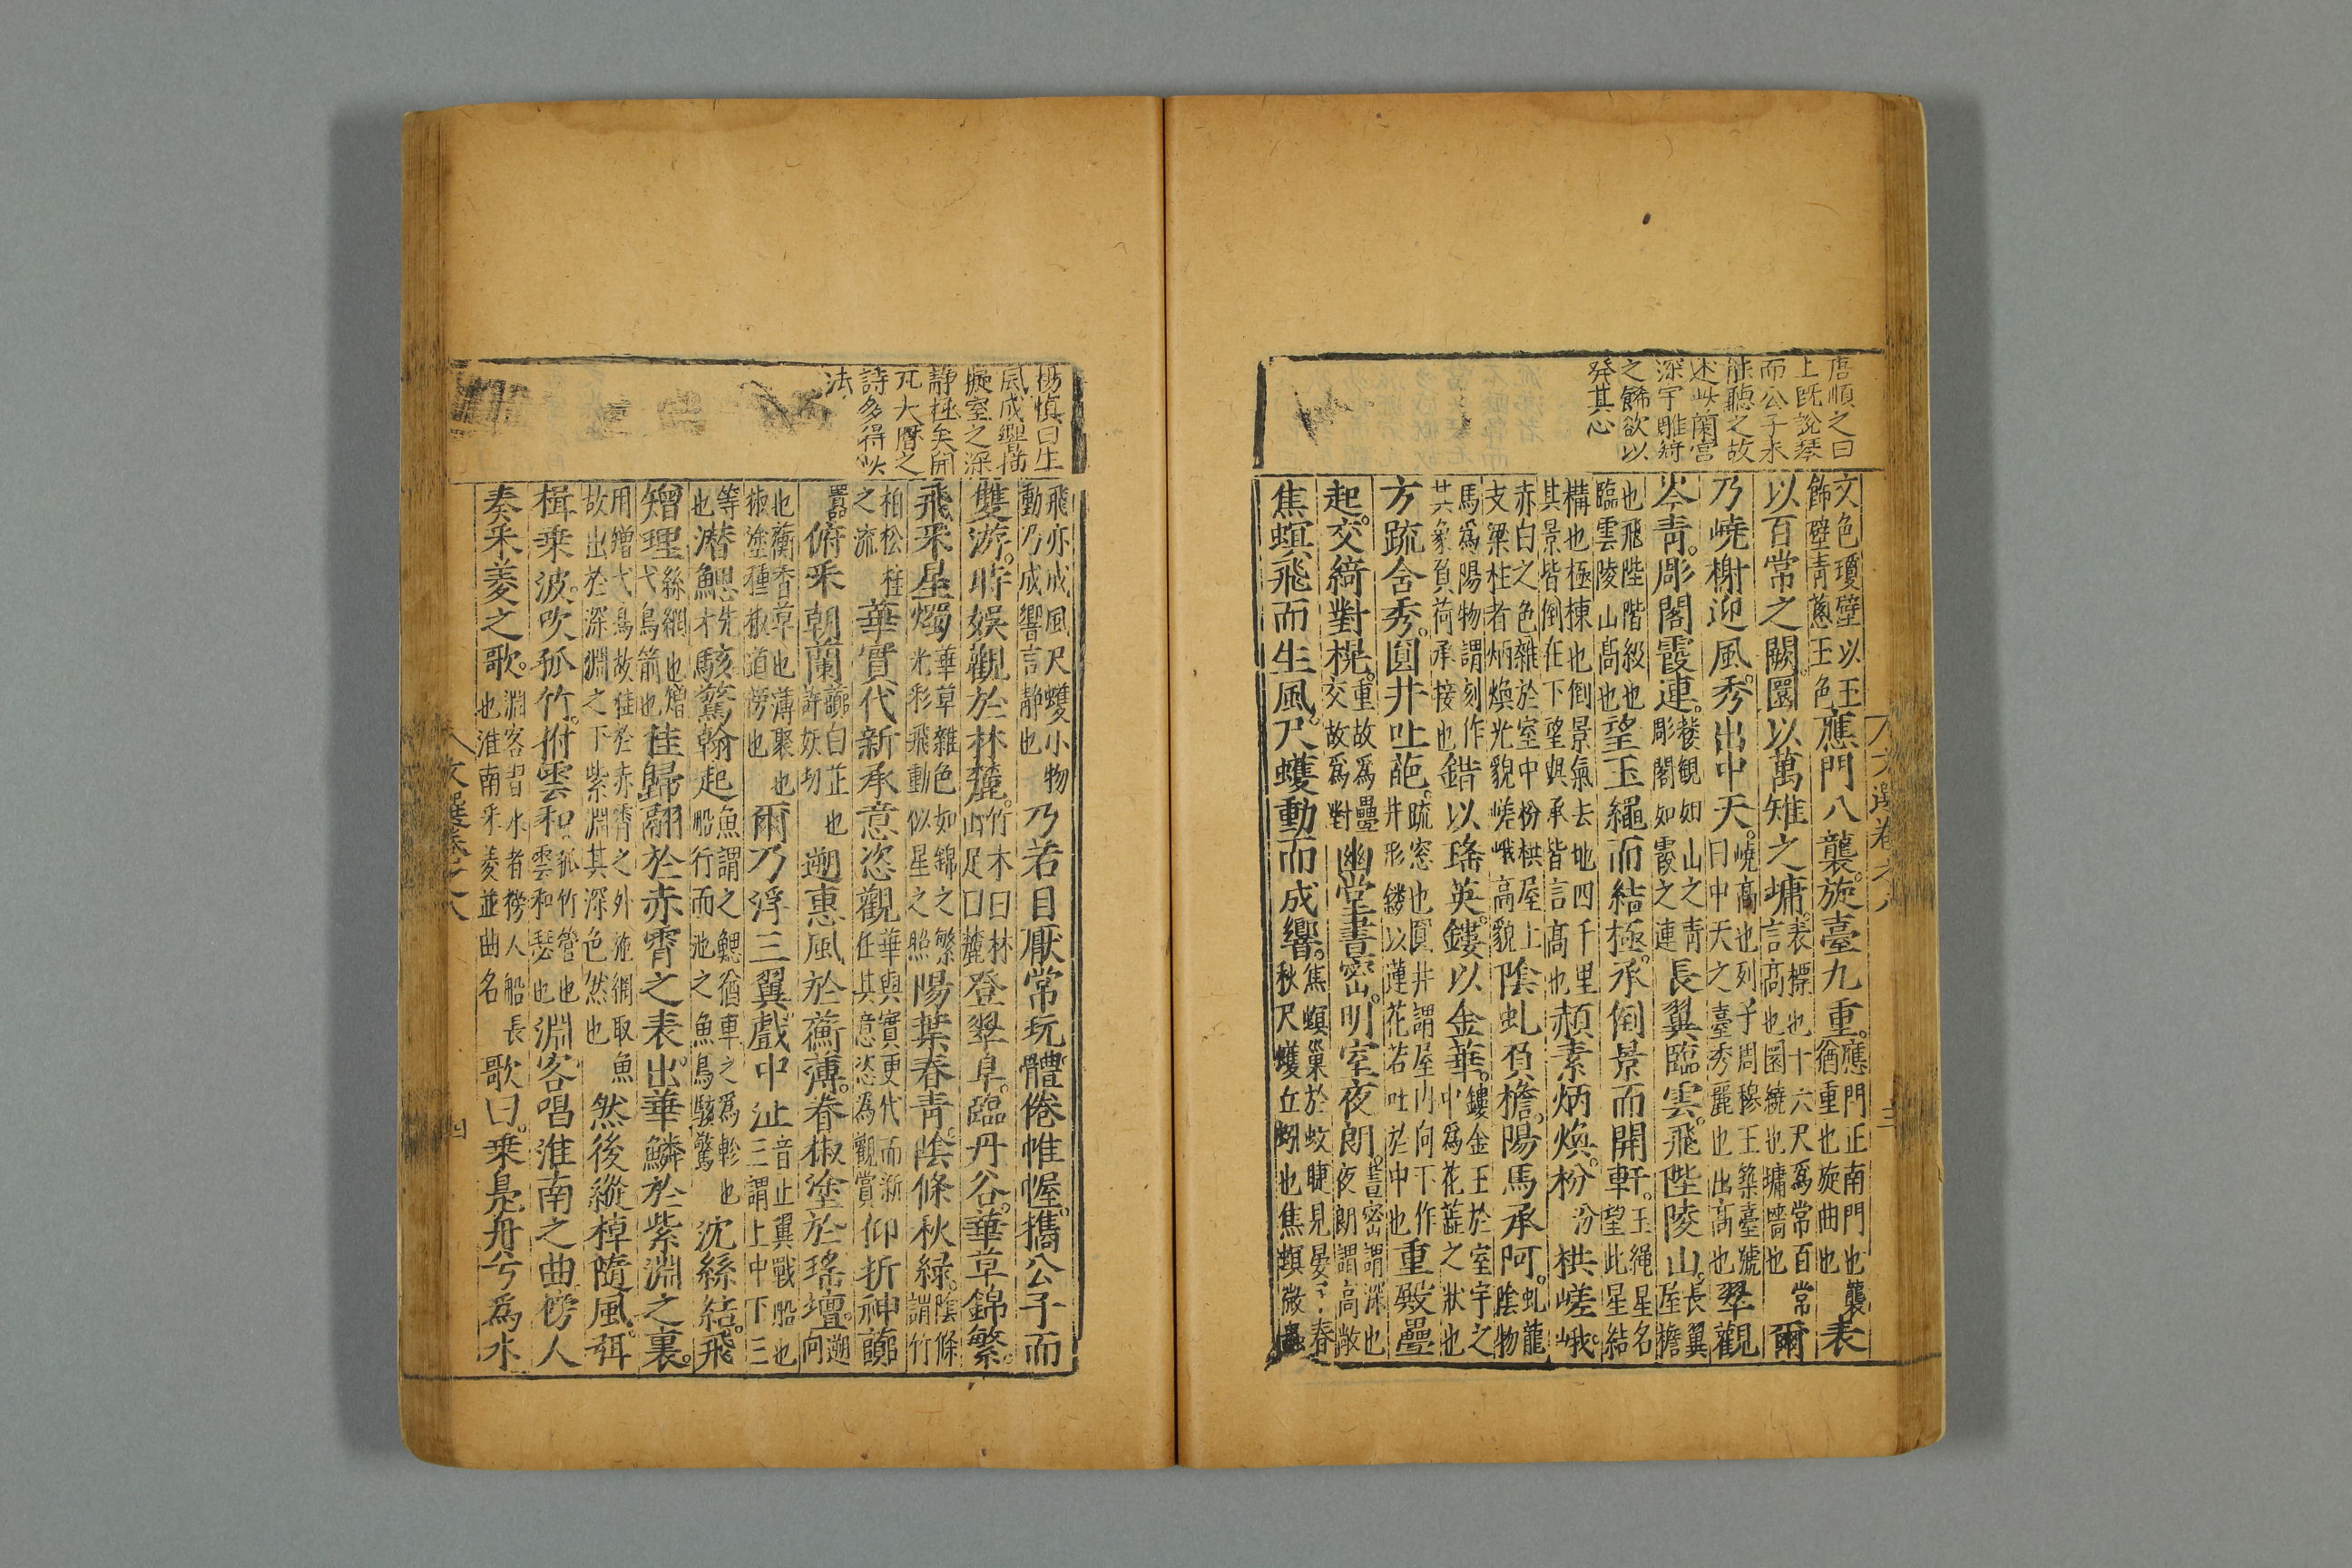 唐順之曰
上既說琴
而公子未
能聽之故
述此蘭宮
深宇雕綺
之飾欲以
發其心
文色瓊壁以玉飾壁青蔥玉色應門八襲。旋臺九重。應門正南門也襲猶重也旋曲也表
以百常之闕。圜以萬雉之墉。表標也十六尺爲常百常言高也圜繞也墉牆也爾
乃嶢榭迎風。秀出中天。嶢高也列子周穆王築臺號曰中天之臺秀麗也出高也翠觀
岑青。彫閣霞連。翠觀如山之青彫閣如霞之連長翼臨雲。飛陛陵山。長翼屋檐
也飛陛階級也臨雲陵山高也望玉繩而結極。承倒景而開軒。玉繩星名望此星結
構也極棟也倒景氣去地四千里其景皆倒在下望與承皆言高也赬素炳煥。枌汾栱嵯峨。
赤白之色雜於室中枌栱屋上支梁柱者炳煥光貌嵯峨高貌陰虬負檐。陽馬承阿。虬龍陰物
馬爲陽物謂刻作其象負荷承接也錯以瑤英。鏤以金華。鏤金玉於室宇之中爲花蕋之狀也
方疏含秀。圓井吐葩。疏窓也圓井謂屋内向下作井形鏤以蓮花若吐於中也重殿疊
起。交綺對榥。重故爲疊交故爲對幽堂晝密。明室夜朗。晝密謂深也夜朗謂高敞
焦螟飛而生風。尺蠖動而成響。焦螟巢於蚊睫見晏子春秋尺蠖丘蚓也焦螟微蟲
文選卷之八
三
楊慎曰生
風成響描
擬室之深
靜極矣開
元大曆之
詩多得此
法
飛亦成風尺蠖小物動乃成響言靜也乃若目厭常玩體倦帷幄。攜公子而
雙游。時娛觀於林麓。竹木曰林山足曰麓登翠阜。臨丹谷。華草錦繁。
飛采星燭。華草雜色如錦之繁光彩飛動似星之照陽葉春青。陰條秋綠。陰條謂竹
柏松桂之流華實代新承意恣觀。華與實更代而新任其意恣爲觀賞仰折神虈
囂俯采朝蘭虈白芷也許妖切遡惠風於蘅薄。眷椒塗於瑤壇。遡向
也蘅香草也薄聚也椒塗種椒道傍也爾乃浮三翼戲中沚音止翼戰船也三謂上中下三
等也潛鰓才先駭驚翰起魚謂之鰓猶車之爲軫也船行而池之魚鳥駭驚沈絲結。飛
矰理絲網也矰弋鳥箭也挂歸翮於赤霄之表。出華鱗於紫淵之裏。
用繒弋鳥故挂於赤霄之外施網取魚故出於深淵之下紫淵其深色然也然後縱棹隨風。弭
楫乗波。吹孤竹。拊雲和孤竹管也雲和瑟也淵客唱淮南之曲榜人
奏采菱之歌。淵客習水者榜人船長也淮南采菱並曲名歌曰。乗鳧舟兮爲水
文選卷之八
四